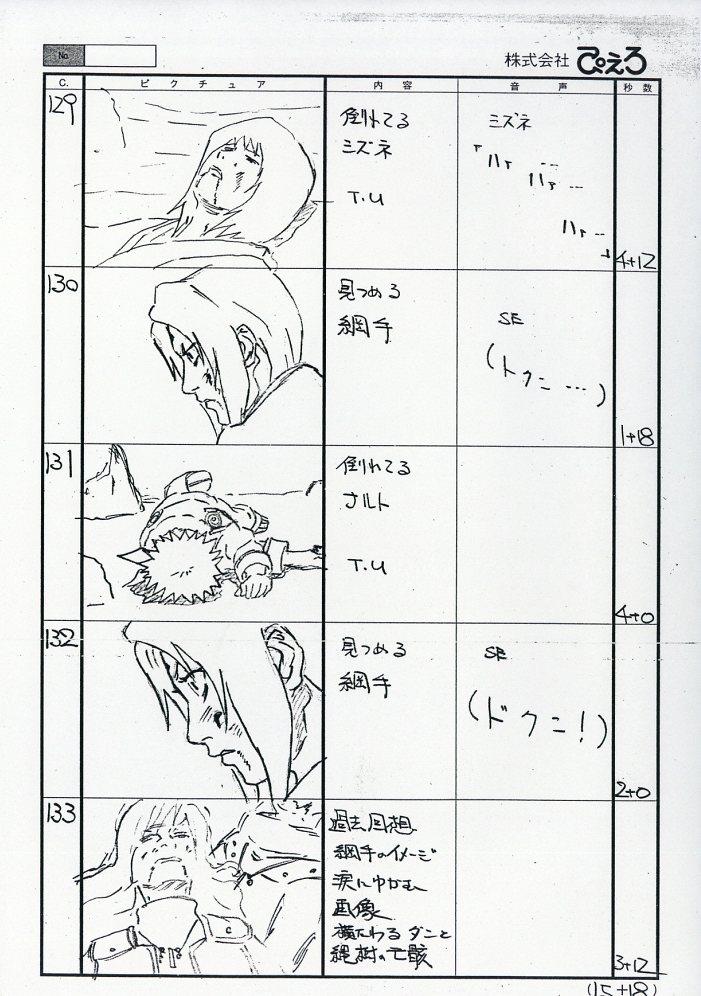 No.
株式会社 ぴえろ
C. ピクチュア 内容 音声 秒数
129
倒れてる
ミズネ
T.U
ミズネ
「ハァ…
ハァ…
ハァ…」
4+12
130
見つめる
綱手
SE
(ドクン…)
1+18
131
倒れてる
ナルト
T.U
4+0
132
見つめる
綱手
SE
(ドクン!)
2+0
133
過去回想
綱手のイメージ
涙にゆがむ
画像
横たわるダンと
縄樹の亡骸
3+12
(15+18)